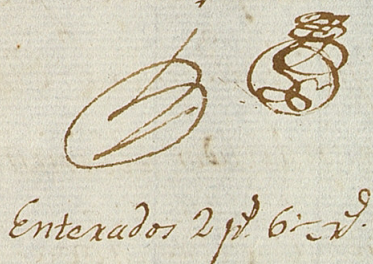 Enterados 2 p.s 6 r.s